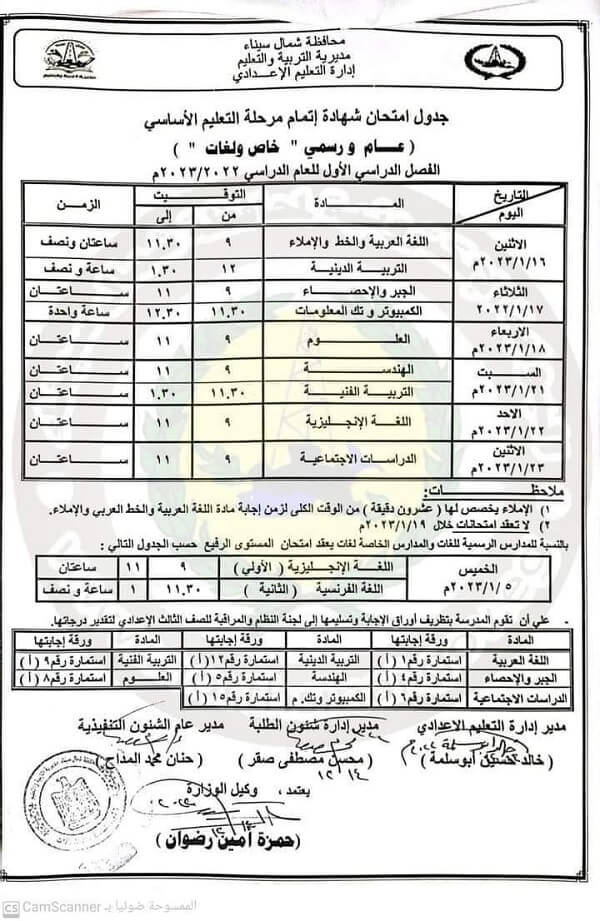 محافظة شمال سيناء
مديرية التربية والتعليم
إدارة التعليم الإعدادي
جدول امتحان شهادة إتمام مرحلة التعليم الأساسي
( عـــام و رسمي " خاص ولغات " )
الفصل الدراسي الأول للعام الدراسي ٢٠٢٣/٢٠٢٢م
التاريخ اليوم | المــادة | التوقيت من | إلى | الزمن
الاثنين ٢٠٢٣/١/١٦م | اللغة العربية والخط والإملاء | ٩ | ١١.٣٠ | ساعتان ونصف
التربية الدينية | ١٢ | ١.٣٠ | ساعة و نصف
الثلاثاء ٢٠٢٢/١/١٧م | الجبر والإحصاء | ٩ | ١١ | ساعتان
الكمبيوتر و تك المعلومات | ١١.٣٠ | ١٢.٣٠ | ساعة واحدة
الاربعاء ٢٠٢٣/١/١٨م | العلوم | ٩ | ١١ | ساعتان
السبت ٢٠٢٣/١/٢١م | الهندسة | ٩ | ١١ | ساعتان
التربية الفنية | ١١.٣٠ | ١.٣٠ | ساعتان
الاحد ٢٠٢٣/١/٢٢م | اللغة الإنجليزية | ٩ | ١١ | ساعتان
الاثنين ٢٠٢٣/١/٢٣م | الدراسات الاجتماعية | ٩ | ١١ | ساعتان
ملاحظات:
١) الإملاء يخصص لها ( عشرون دقيقة ) من الوقت الكلى لزمن إجابة مادة اللغة العربية والخط العربي والإملاء.
٢) لا تعقد امتحانات خلال ٢٠٢٣/١/١٩م
بالنسبة للمدارس الرسمية للغات والمدارس الخاصة لغات يعقد امتحان المستوى الرفيع حسب الجدول التالي :
الخميس ٢٠٢٣/١/٥م | اللغة الإنجليزية ( الأولي ) | ٩ | ١١ | ساعتان
اللغة الفرنسية ( الثانية ) | ١١.٣٠ | ١ | ساعة و نصف
- علي أن تقوم المدرسة بتظريف أوراق الإجابة وتسليمها إلى لجنة النظام والمراقبة للصف الثالث الإعدادي لتقدير درجاتها.
المــادة | ورقة إجابتها | المــادة | ورقة إجابتها | المادة | ورقة إجابتها
اللغة العربية | استمارة رقم ١ (أ) | التربية الدينية | استمارة رقم ١٢ (أ) | التربية الفنية | استمارة رقم ٩ (أ)
الجبر والإحصاء | استمارة رقم ٤ (أ) | الهندسة | استمارة رقم ٥ (أ) | العلوم | استمارة رقم ٨ (أ)
الدراسات الاجتماعية | استمارة رقم ٦ (أ) | الكمبيوتر وتك. م | استمارة رقم ١٥ (أ)
مدير إدارة التعليم الاعدادي
(خالد حسين أبوسلمة)
مدير إدارة شئون الطلبة
(محسن مصطفى صقر)
١٢/١٤
مدير عام الشئون التنفيذية
(حنان محمد المداح)
يعتمد ،
وكيل الوزارة
(حمزة أمين رضوان)
CS CamScanner الممسوحة ضوئيا بـ